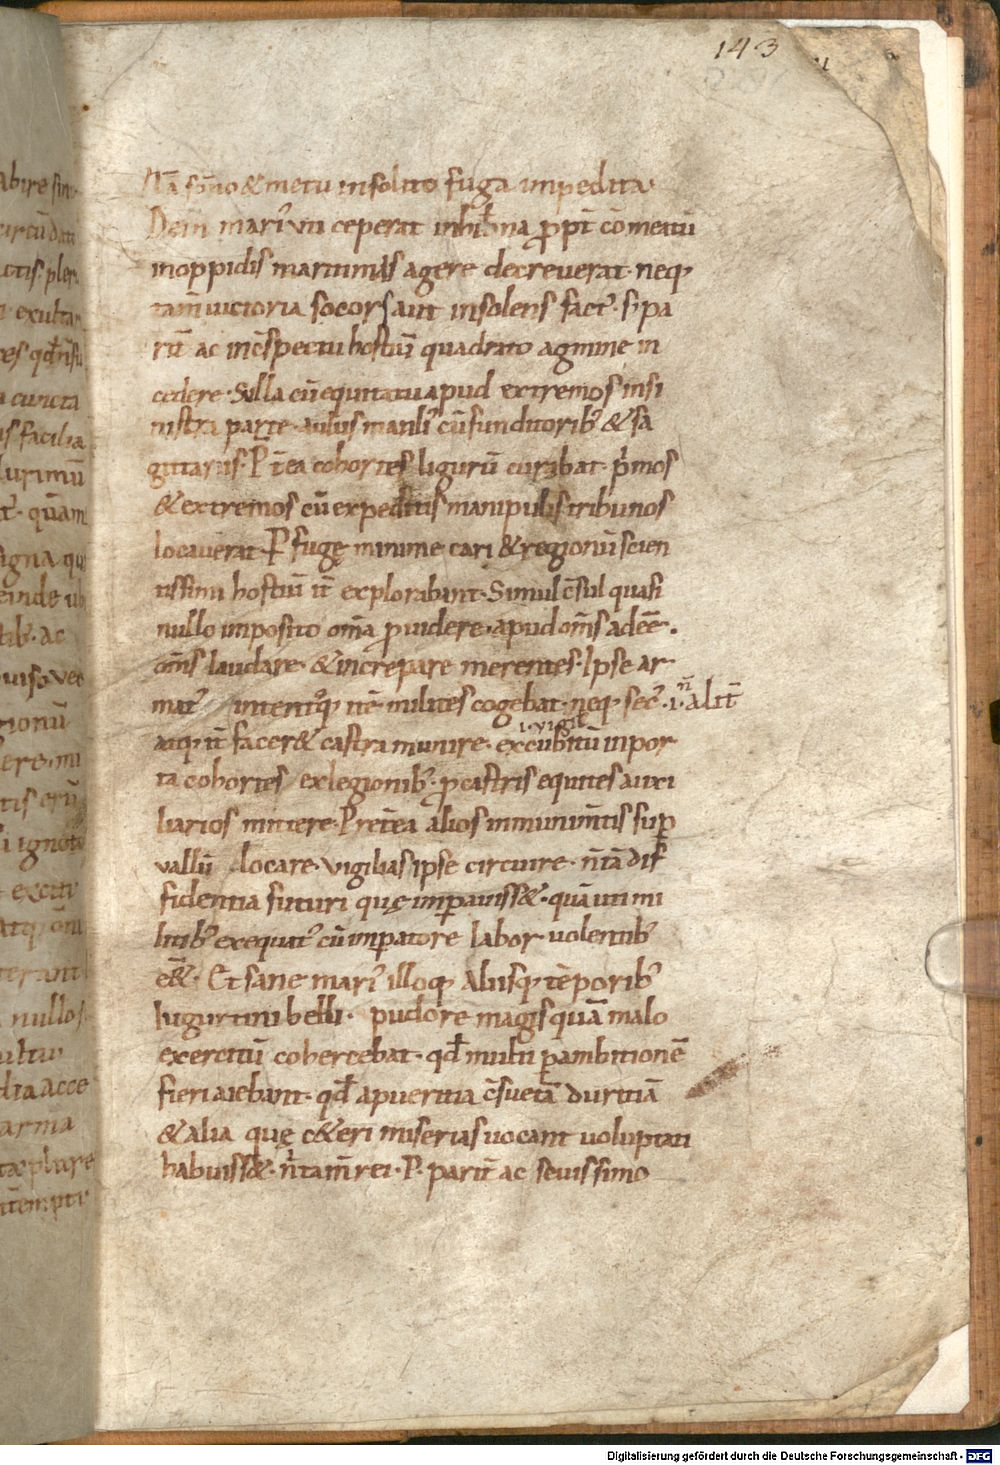 143
Nā sōno & metu insolito fuga impedita.
Dein̄ mari᾿ uti ceperat inhib̄na ꝓpt̄ cōmeatū
inoppidis maritimis agere decreuerat. neq;
tam̄ uictoria socors aut insolens fact᾿. s; pa
rit̄ ac inc̄spectu hostiū quadrato agmine in
cedere. Sulla cū equitatu apud extremos insi
nistra parte. aulus manli᾿ cū funditorib᾿ & sa
gittariis. P̄t̄ea cohortes ligurū curabat. p̄mos
& extremos cū expeditis manipulis tribunos
locauerat. P̄fugę minime cari & regionū scien
tissimi hostiū it̄ explorabant. Simul c̄sul quasi
nullo imposito om̄a ꝓuidere. apud om̄s adeē᾿.
om̄s laudare. & increpare merentes. Ipse ar
mat᾿ intent᾿q; itē milites cogebat. neq; sec᾿ .i. n̄ alit̄
atq; it̄ facer& castra munire. excubitū inpor
.i. vigil
ta cohortes exlegionib᾿. ꝓcastris equites auxi
liarios mittere. Pret̄ea alios inmunim̄tis sup̄
vallū locare. vigilias ipse circuire. n̄ tā dif
fidentia futuri quę imꝑauiss&. quā uti mi
litib᾿ exequat᾿ cū imꝑatore labor uolentib᾿
eē&. Et sane mari᾿ illoq; aliisq; tēporib᾿
Iugurtini belli. pudore magis quā malo
exercitū cohercebat. qđ multi ꝑambitionē
fieri aiebant. qđ apueritia c̄suetā duritiā
& alia quę c&eri miserias uocant uoluptati
habuiss&. n̄ tam̄ rei. P. parit̄ ac seuissimo
abire sin
exulta
cuncta
is facilia
lurimū
quam
signa qu
einde ub
ac
rionū
ere. mi
ignoto
nullos
dia acce
arma
Digitalisierung gefördert durch die Deutsche Forschungsgemeinschaft - DFG